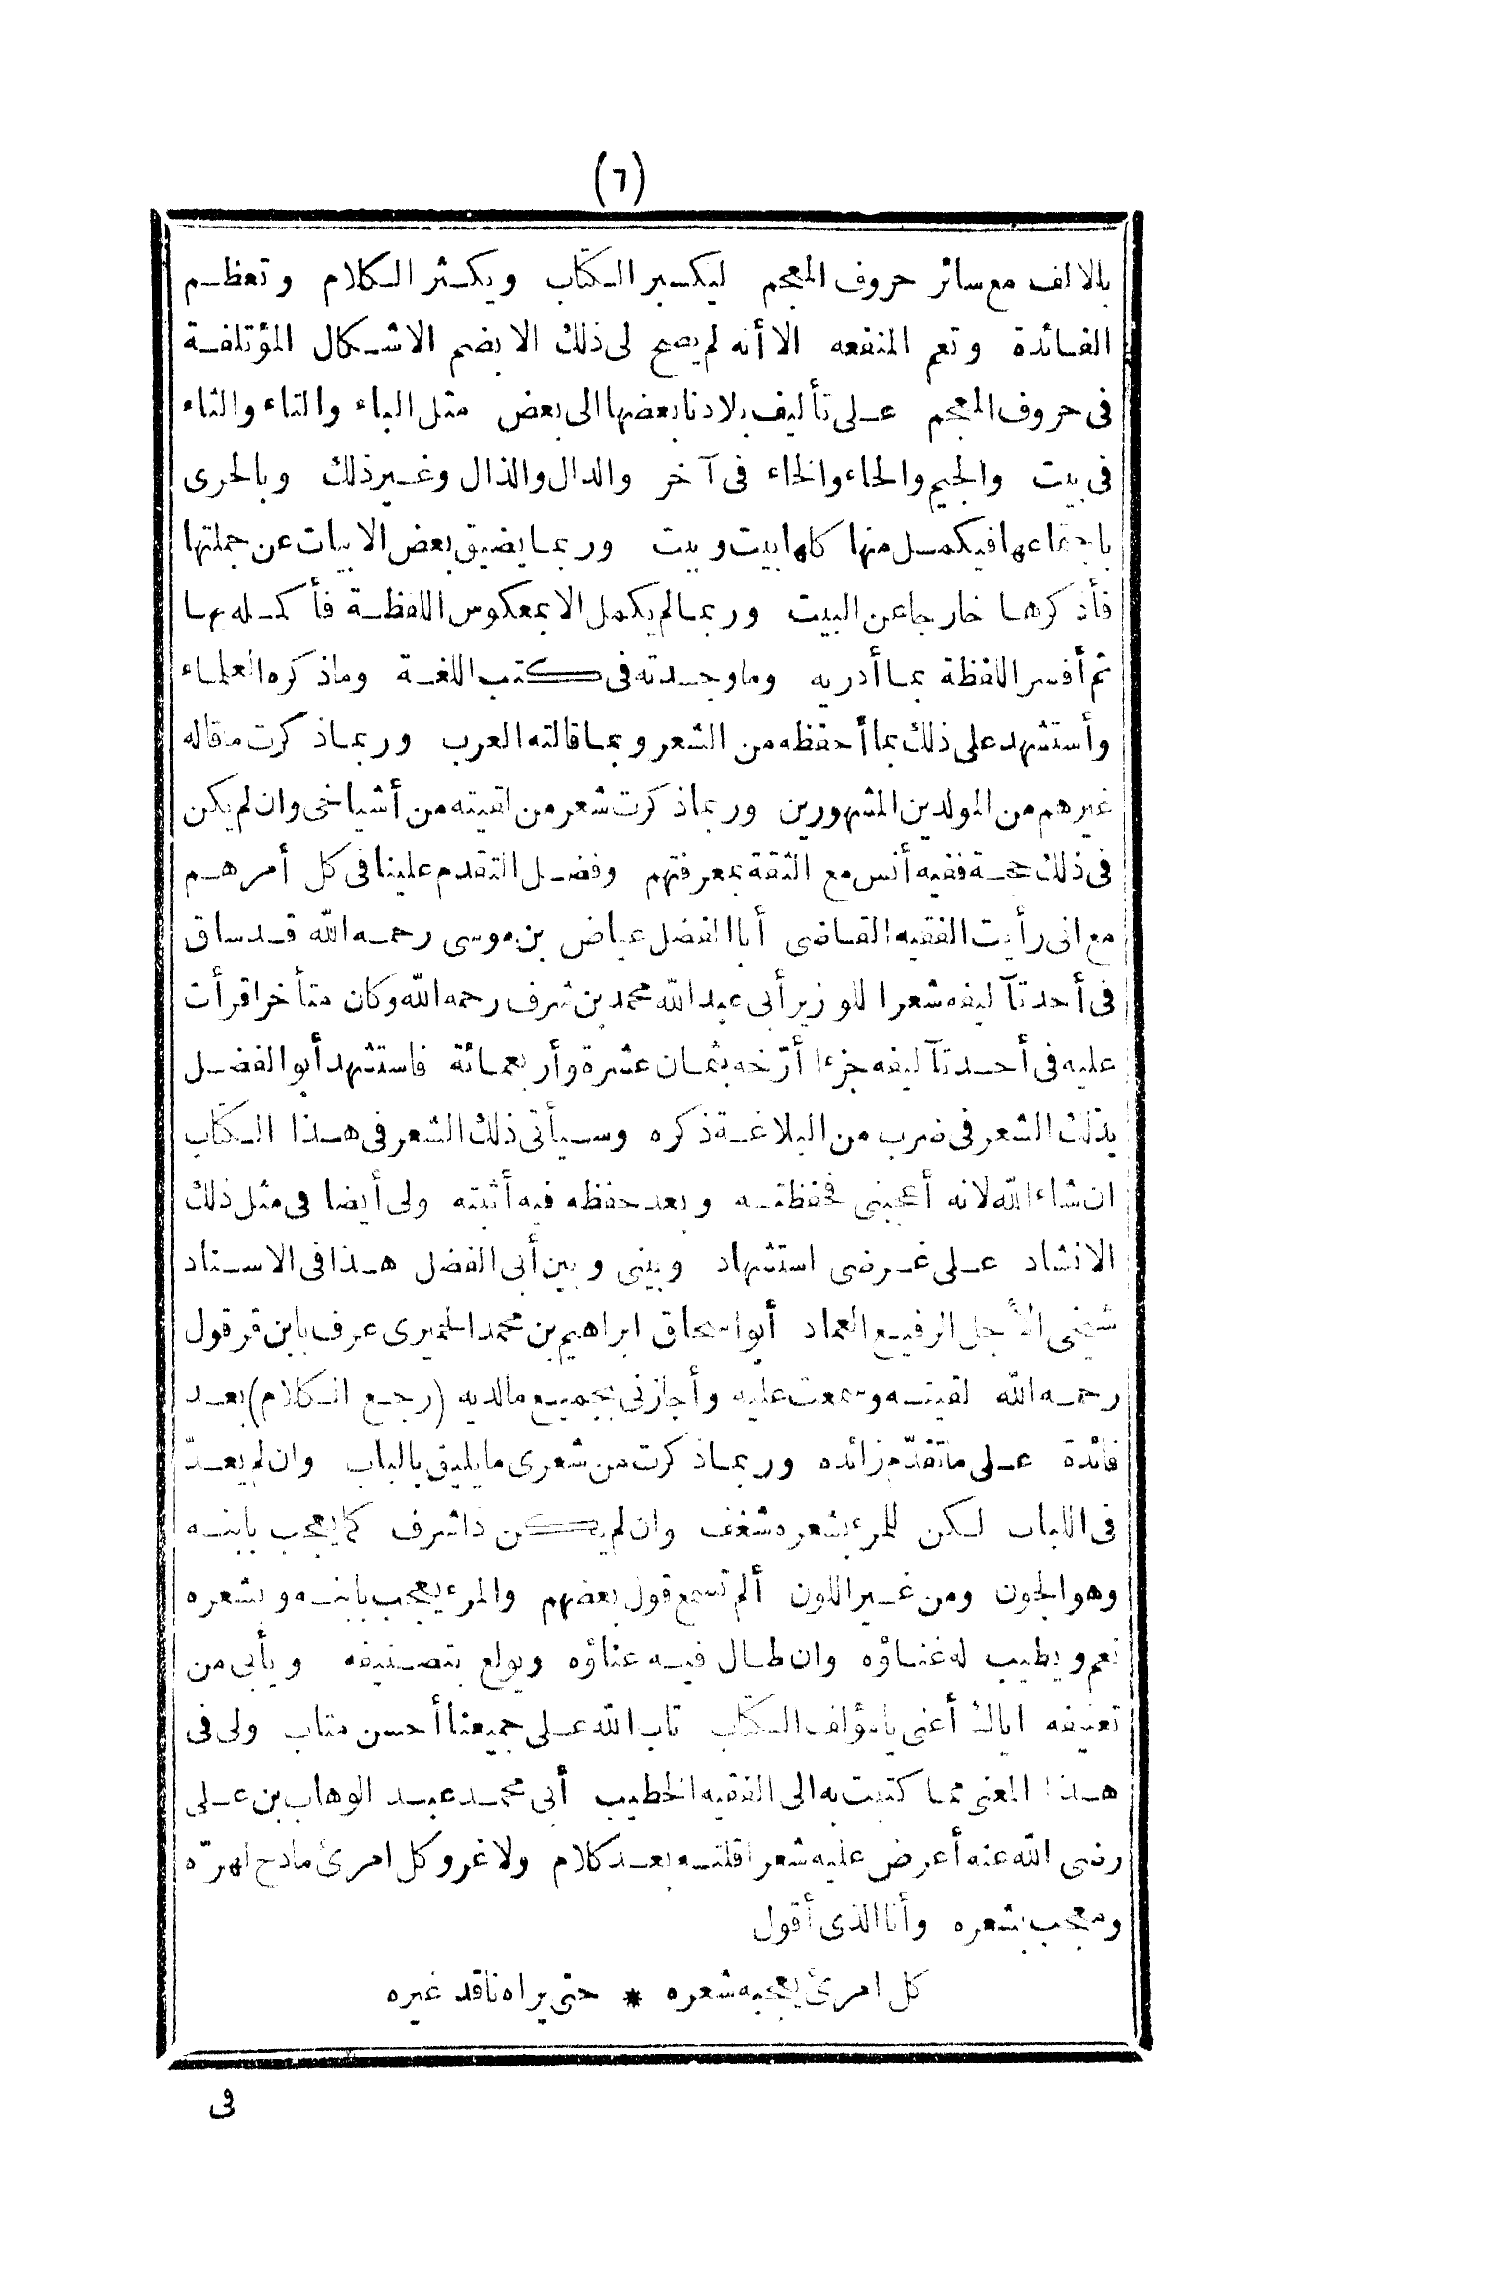 (٦)
بالالف مع سائر حروف المعجم ليكبر الكتاب ويكثر الكلام وتعظم
الفائدة وتعم المنفعه الا أنه لم يصح لى ذلك الا بضم الاشكال المؤتلفة
فى حروف المعجم على تأليف بلادنا بعضها الى بعض مثل الباء والتاء والثاء
فى بيت والجيم والحاء والخاء فى آخر والدال والذال وغير ذلك وبالحرى
باجتماعها فيكمل منها كلها بيت وبيت وربما يضيق بعض الابيات عن جملتها
فأذكرها خارجا عن البيت وربما لم يكمل الا بمعكوس اللفظة فأكمله بها
ثم أفسر اللفظة بما أدريه وما وجدته فى كتب اللغة وما ذكره العلماء
وأستشهد على ذلك بما أحفظه من الشعر وبما قالته العرب وربما ذكرت ما قاله
غيرهم من المولدين المشهورين وربما ذكرت شعر من لقيته من أشياخى وان لم يكن
فى ذلك حجة ففيه أنس مع الثقة بمعرفتهم وفضل التقدم علينا فى كل أمرهم
مع انى رأيت الفقيه القاضى أبا الفضل عياض بن موسى رحمه الله قد ساق
فى أحد تآليفه شعرا للوزير أبى عبد الله محمد بن شرف رحمه الله وكان متأخرا قرأت
عليه فى أحد تآليفه جزءا أرّخه بثمان عشرة وأربعمائة فاستشهد أبو الفضل
بذلك الشعر فى ضرب من البلاغة ذكره وسيأتى ذلك الشعر فى هذا الكتاب
ان شاء الله لانه أعجبنى فحفظته وبعد حفظه فيه أثبته ولى أيضا فى مثل ذلك
الانشاد على غرضى استشهاد وبينى وبين أبى الفضل هذا فى الاسناد
شيخى الأجل الرفيع العماد أبو اسحاق ابراهيم بن محمد الحميرى عرف بابن قرقول
رحمه الله لقيته وسمعت عليه وأجازنى بجميع ما لديه (رجع الكلام) بعد
فائدة على ما تقدّم زائده وربما ذكرت من شعرى ما يليق بالباب وان لم يعدّ
فى اللباب لكن للمرء بشعره شغف وان لم يكن ذا شرف كما يعجب بابنه
وهو الجون ومن غير اللون ألم تسمع قول بعضهم والمرء يعجب بابنه وبشعره
نعم ويطيب له غناؤه وان طال فيه عناؤه ويولع بتصنيفه ويأبى من
تعنيفه اياك أعنى يا مؤلف الكتاب تاب الله على جميعنا أحسن متاب ولى فى
هذا المعنى مما كتبت به الى الفقيه الخطيب أبى محمد عبد الوهاب بن على
رضى الله عنه أعرض عليه شعرا قلته بعد كلام ولا غرو كل امرئ مادح لهرّه
ومعجب بشعره وأنا الذى أقول
كل امرئ يعجبه شعره * حتى يراه ناقد غيره
فى